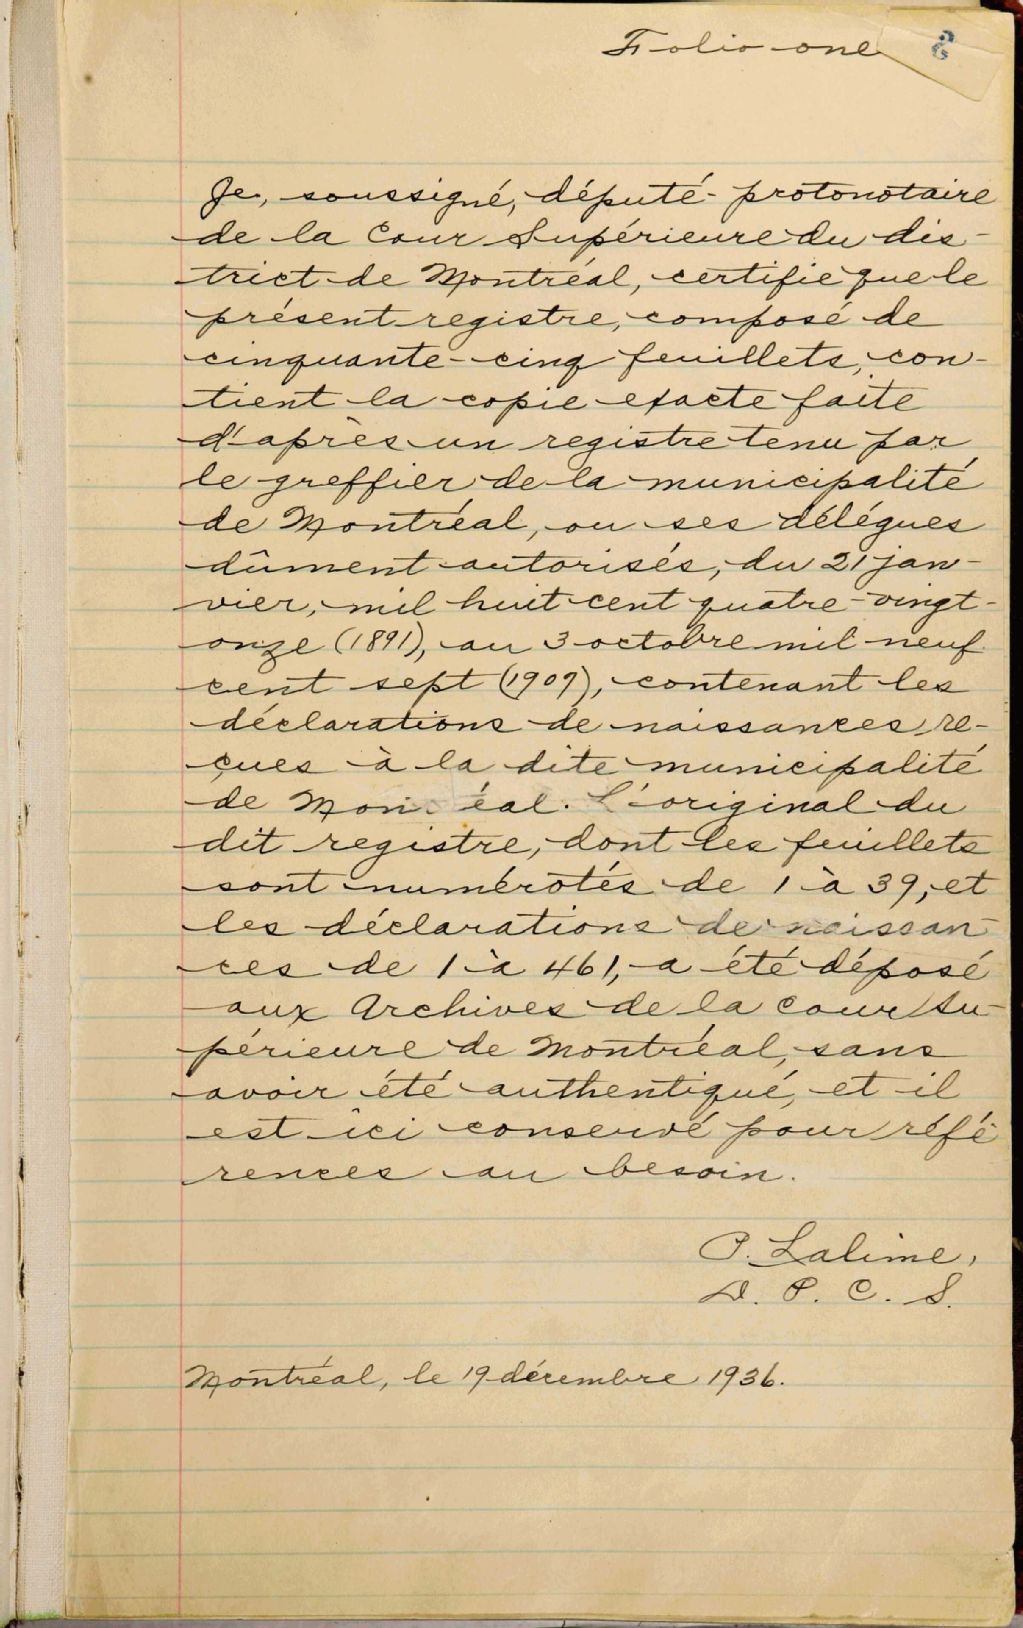 Folio one
8
Je, soussigné, député-protonotaire
de la Cour Supérieure du dis-
trict de Montréal, certifie que le
présent registre, composé de
cinquante-cinq feuillets, con-
tient la copie exacte faite
d'après un registre tenu par
le greffier de la municipalité
de Montréal, ou ses délégués
dûment autorisés, du 21 jan-
vier, mil huit cent quatre-vingt-
onze (1891), au 3 octobre mil neuf
cent sept (1907), contenant les
déclarations de naissances re-
çues à la dite municipalité
de Montréal. L'original du
dit registre, dont les feuillets
sont numérotés de 1 à 39, et
les déclarations de naissan-
ces de 1 à 461, a été déposé
aux Archives de la Cour Su-
périeure de Montréal, sans
avoir été authentiqué, et il
est ici conservé pour réfé-
rences au besoin.
P. Lalime,
D. P. C. S.
Montréal, le 19 décembre 1936.